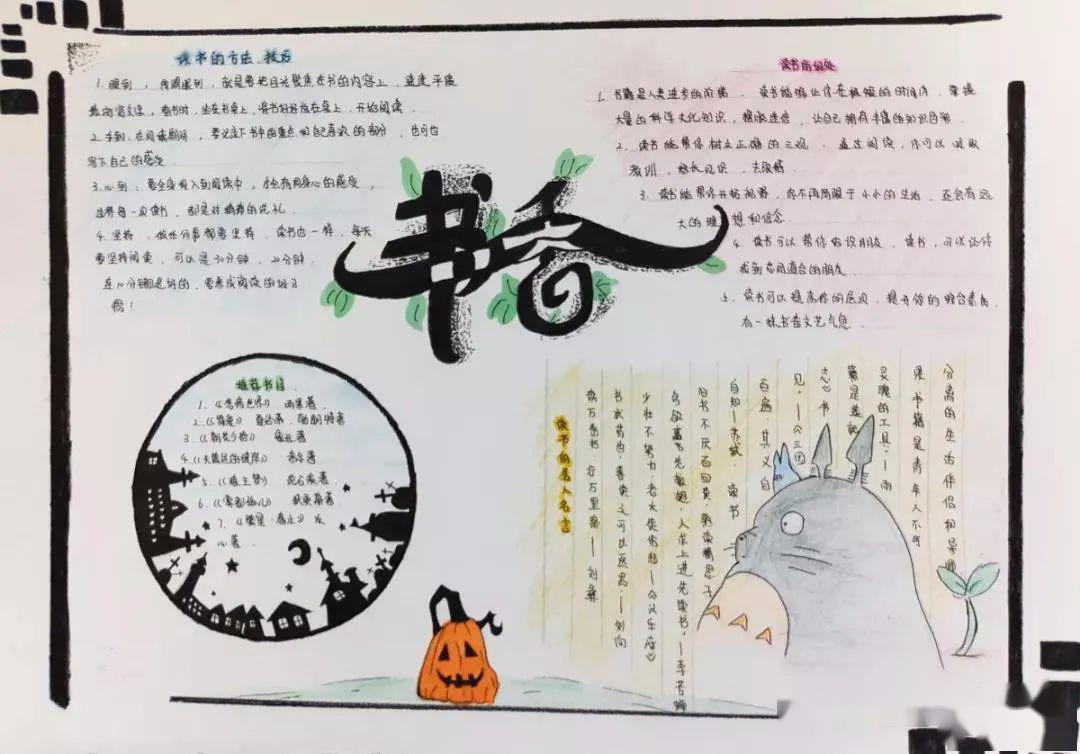 读书的方法、技巧
1.眼到，所谓眼到，就是要把目光聚焦在书的内容上，速度平缓
看书时，坐在书桌上，将书好好放在桌上，开始阅读．
2.手到．在阅读期间，要记下书中的重点和自己喜欢的部分，也可也
写下自己的感受．
3.心到：要全身投入到阅读中，才会有用身心的感受，
每一次读书，都是对精神的洗礼．
4.坚持，做任何事都要坚持，读书也一样，每天
要坚持阅读，可以是30分钟，20分钟．
连10分钟都是好的，要养成阅读的好习
惯！
书香
读书的好处
1.书籍是人类进步的阶梯，读书能够让你在极短的时间内，掌握
大量的科学文化知识，摆脱迷信，让自己拥有丰富的知识
2.读书能帮你树立正确的三观．通过阅读，你可以吸取
教训，增长见识，去
3.读书能帮你开拓视野，你不再局限于小小的生活，还会有远
大的理想和信念．
4.读书可以帮你结识朋友，读书，可以让你
找到志同道合的朋友．
5.读书可以提高你的层次，提升你的综合素质，
有一种书香文艺气息．
推荐书目
1.《悲惨世界》 雨果著．
2.《简爱》 夏洛蒂．勃朗特著
3.《朝花夕拾》 鲁迅著
4.《大
5.《
6.《雾都孤儿》 狄更斯著．
7.《繁星·春水》冰
心著．
读书的名人名言
读万卷书．行万里路—刘彝
书犹药也，善读之可以医愚．—刘向
少壮不努力，老大徒伤悲—《汉乐府》
鸟欲高飞先振翅．人求上进先读书．—李苦禅
旧书不厌百回读．熟读精思子
自知—苏轼．读书
百遍 其义自
见．—《三国
志》书
籍是造就
灵魂的工具．—雨
果．书籍是青年人不可
分离的生活伴侣和导师